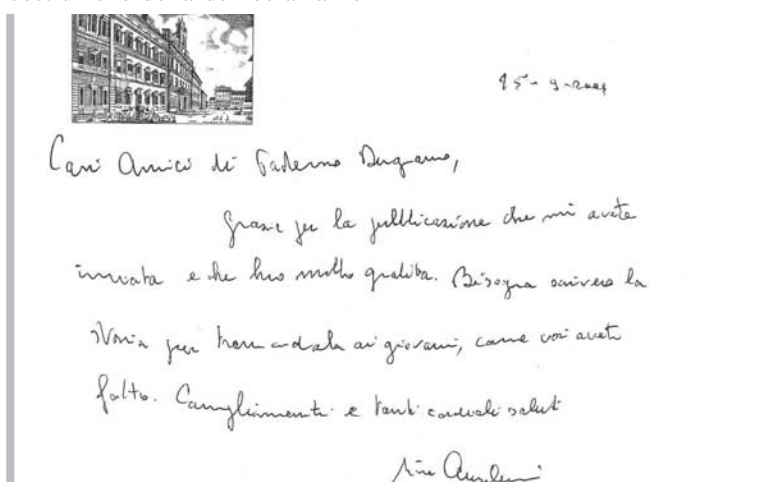 15-9-2004
Cari Amici di Paderno Dugnano,
Grazie per la pubblicazione che mi avete
inviata e che ho molto gradita. Bisogna scrivere la
storia per tramandarla ai giovani, come voi avete
fatto. Complimenti e tanti cordiali saluti
Tina Anselmi